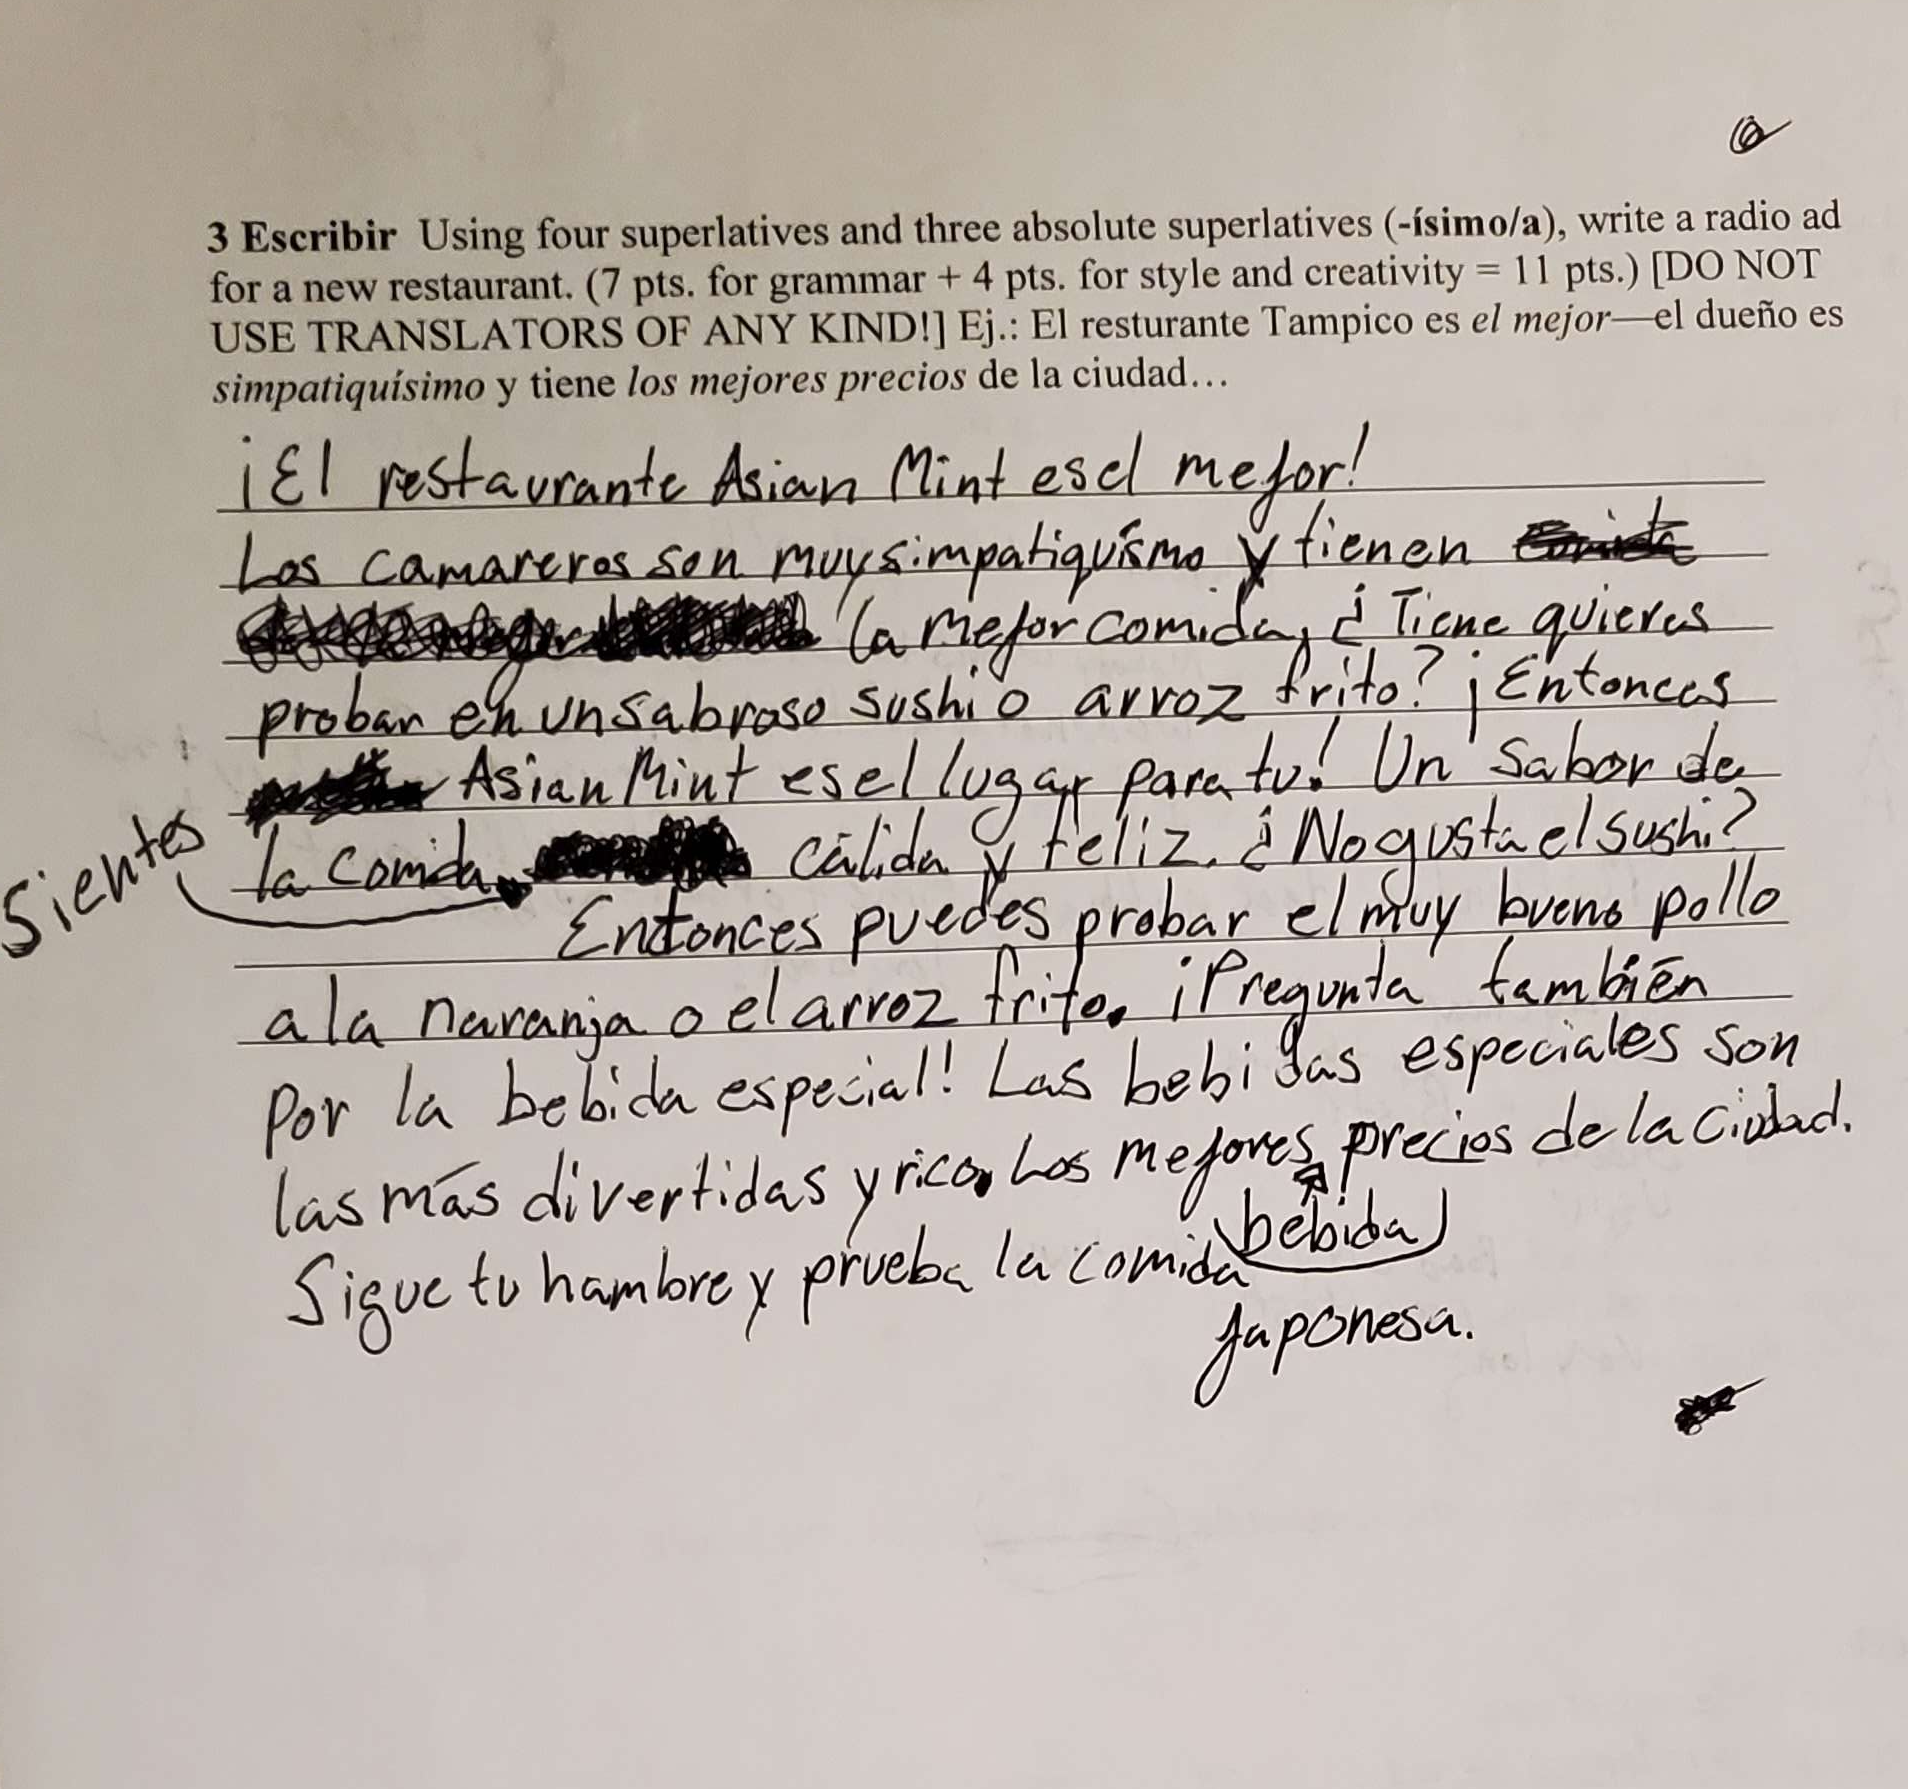 3 Escribir Using four superlatives and three absolute superlatives (-ísimo/a), write a radio ad
for a new restaurant. (7 pts. for grammar + 4 pts. for style and creativity = 11 pts.) [DO NOT
USE TRANSLATORS OF ANY KIND!] Ej.: El resturante Tampico es el mejor—el dueño es
simpatiquísimo y tiene los mejores precios de la ciudad…
¡El restaurante Asian Mint es el mejor!
Los camareros son muy simpatiquísmo y tienen
la mejor comida, ¿Tiene quieres
probar en un sabroso sushi o arroz frito? ¡Entonces
Asian Mint es el lugar para tu! Un sabor de
Sientes
la comida cálida y feliz. ¿No gusta el sushi?
Entonces puedes probar el muy bueno pollo
a la naranja o el arroz frito. ¡Pregunta también
por la bebida especial! Las bebidas especiales son
las más divertidas y rico. Los mejores precios de la ciudad.
bebida
Sigue tu hambre y prueba la comida
japonesa.